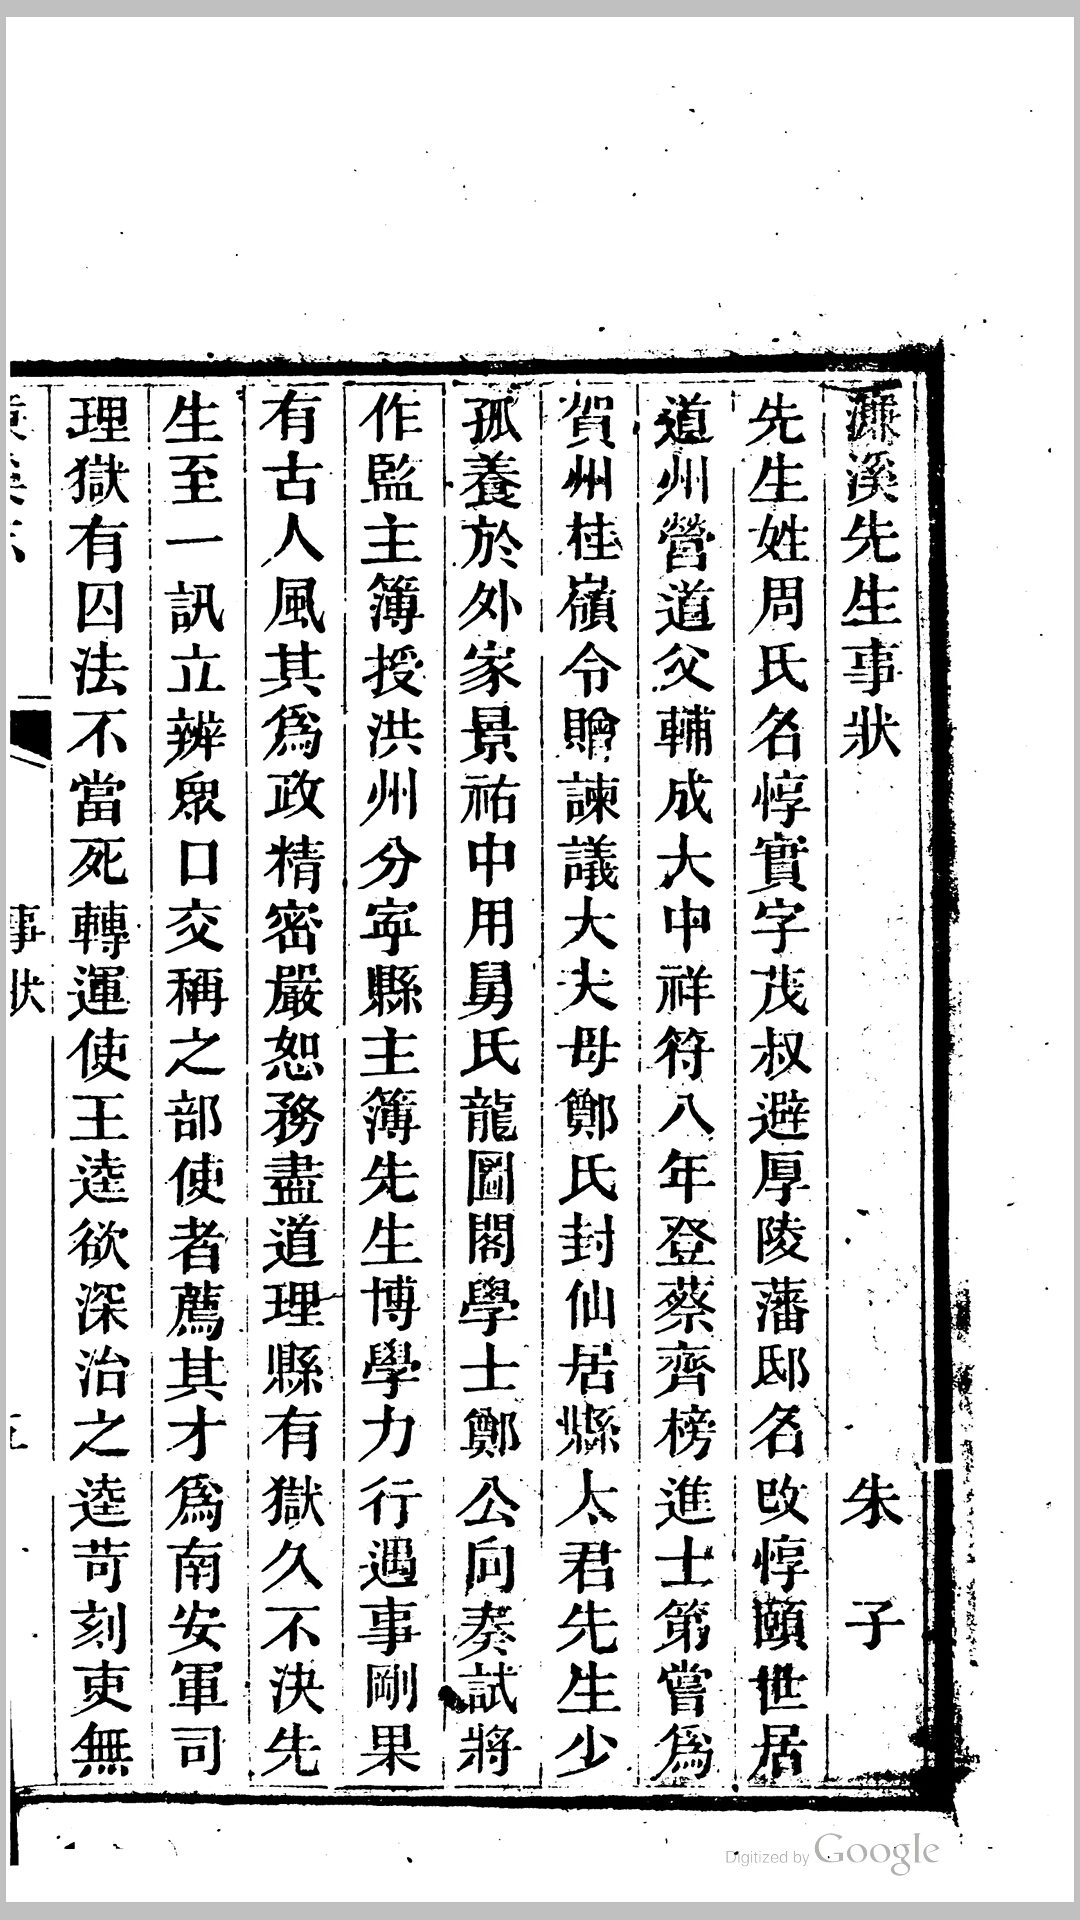 濂溪先生事狀 朱子
先生姓周氏名惇實字茂叔避厚陵藩邸名改惇頤世居
道州營道父輔成大中祥符八年登蔡齊榜進士第嘗爲
賀州桂嶺令贈諫議大夫母鄭氏封仙居縣太君先生少
孤養於外家景祐中用舅氏龍圖閣學士鄭公向奏試將
作監主簿授洪州分寧縣主簿先生博學力行遇事剛果
有古人風其爲政精密嚴恕務盡道理縣有獄久不決先
生至一訊立辨衆口交稱之部使者薦其才爲南安軍司
理獄有囚法不當死轉運使王逵欲深治之逵苛刻吏無
事狀
Digitized by Google